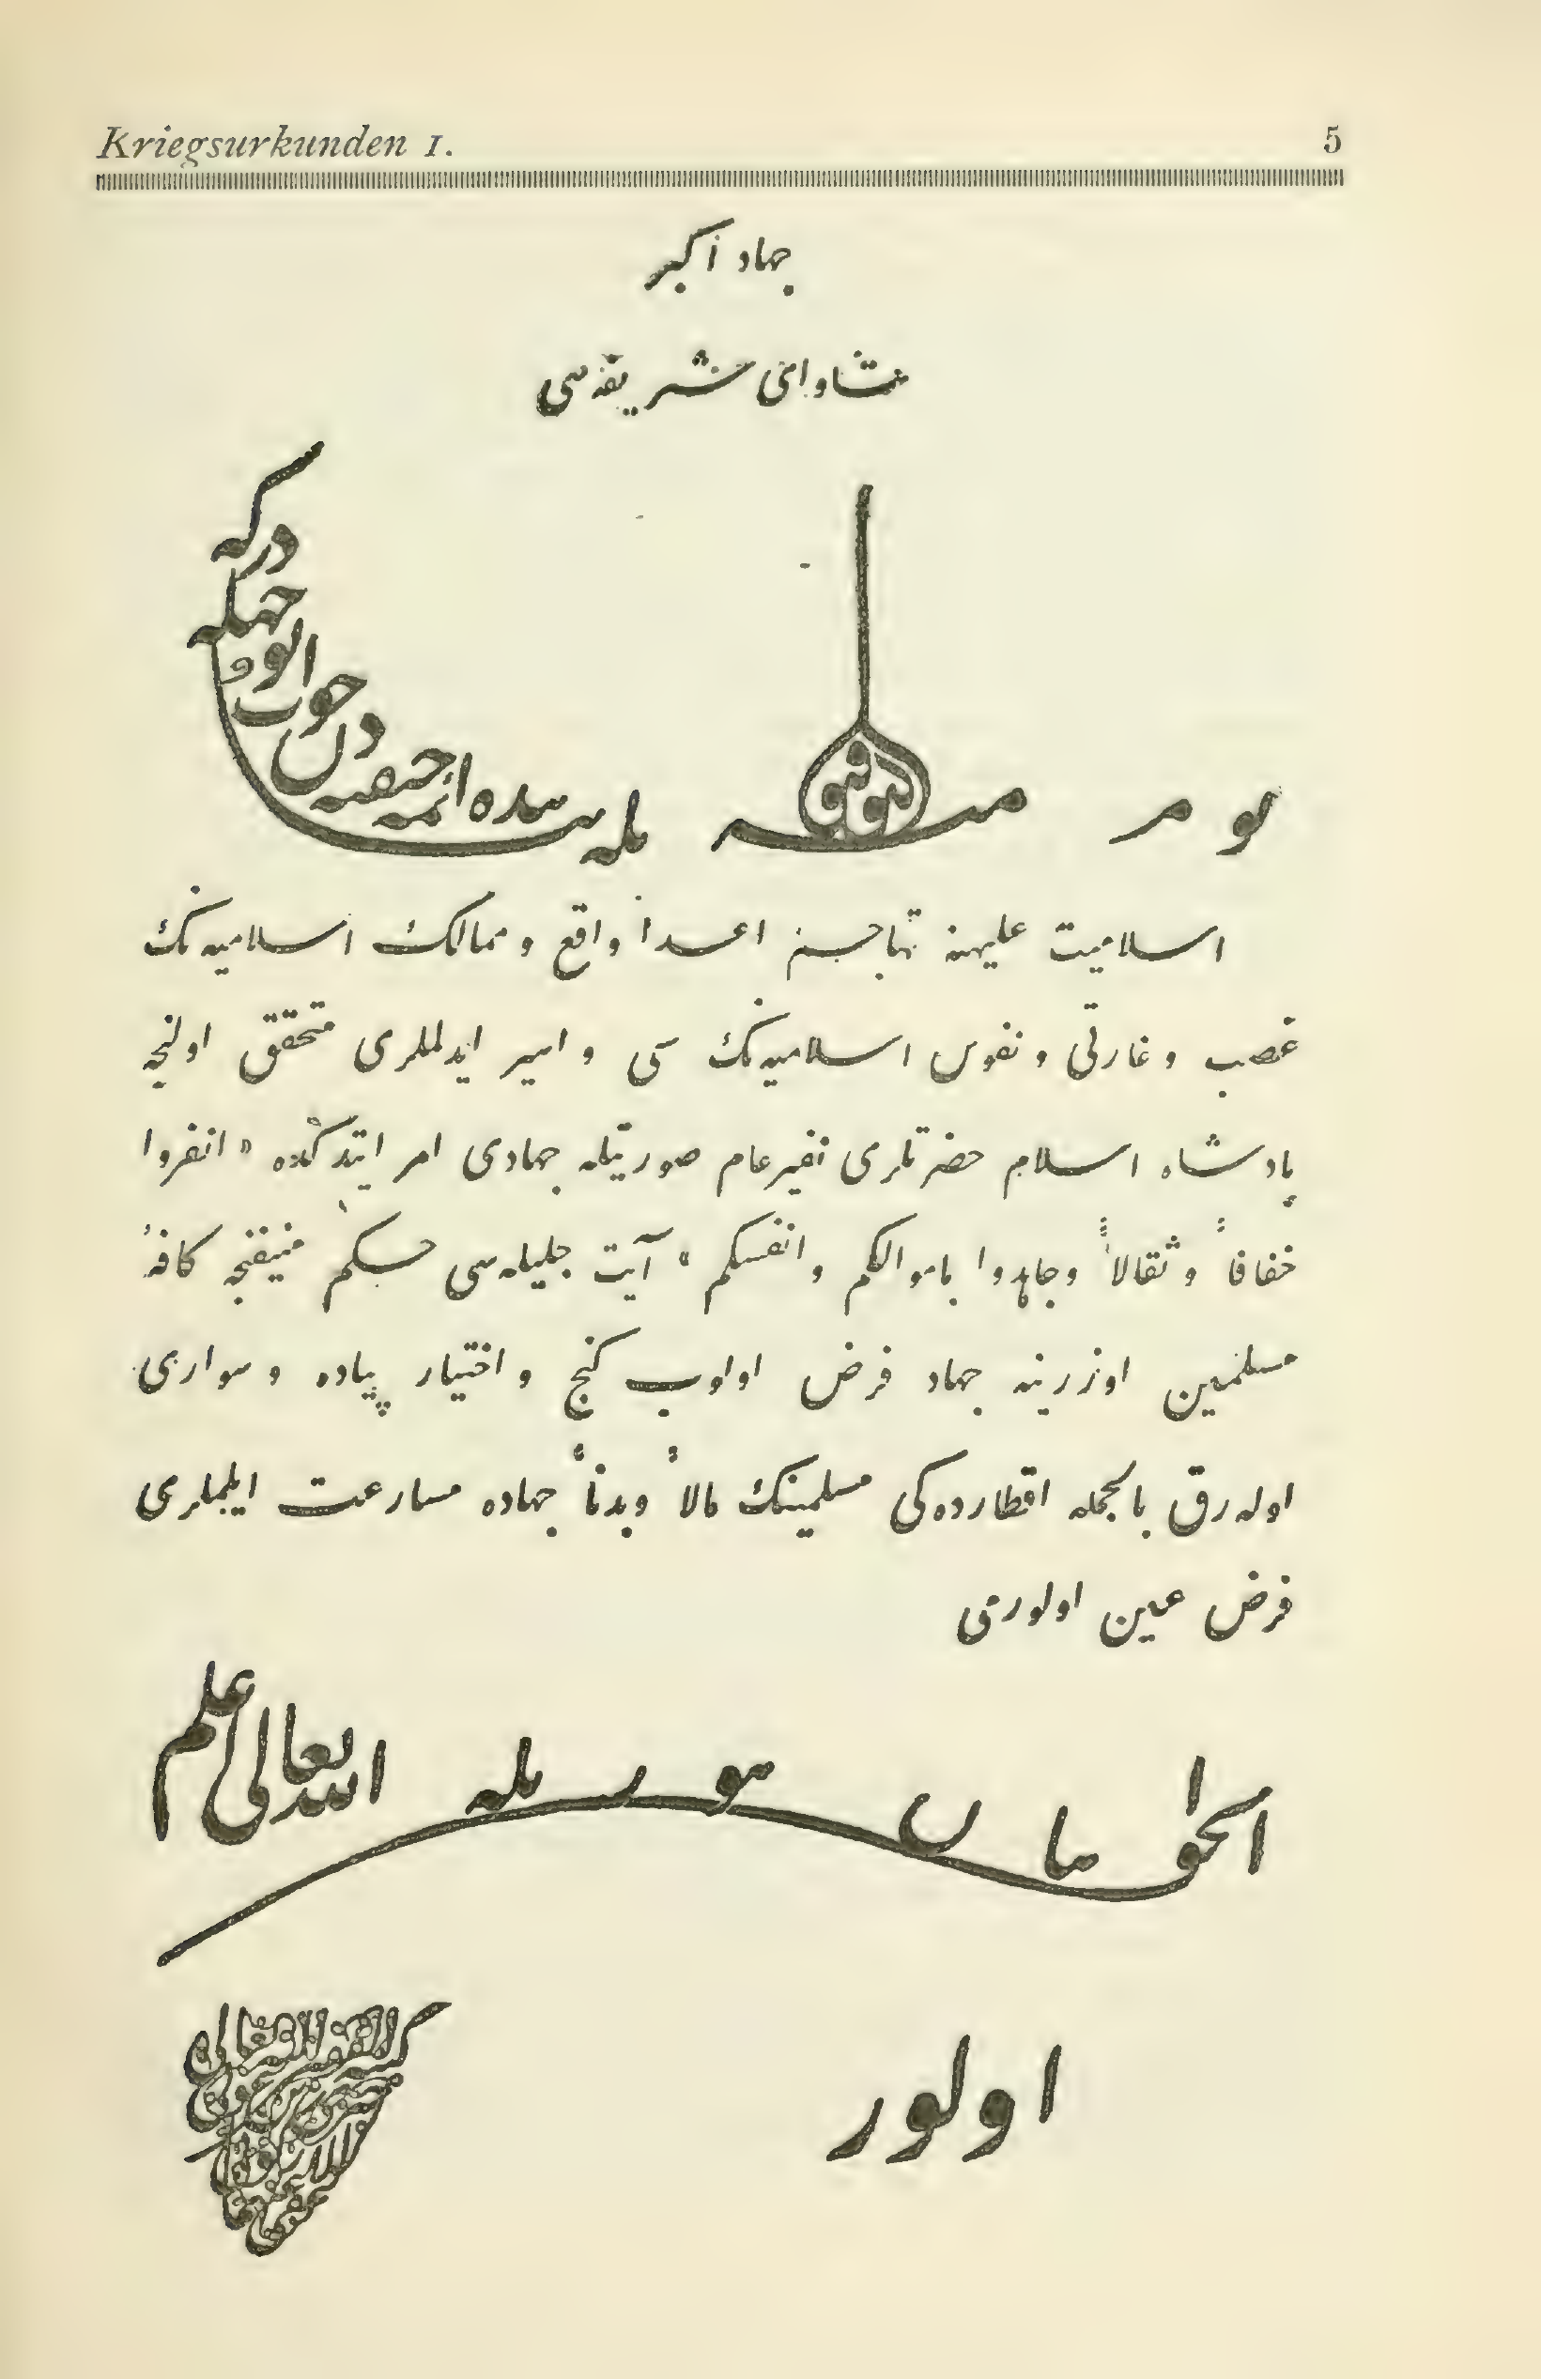 Kriegsurkunden 1. 5
جهاد اكبر
فتاوای شریفه‌سی
بو مسئله بیانده ائمه حنفیه‌دن جواب نه وجهله دركه
اسلامیت علیهنه تهاجم اعدا واقع و ممالك اسلامیه‌نك
غصب و غارتی و نفوس اسلامیه‌نك سبی و اسیر ایدلملری متحقق اولنجه
پادشاه اسلام حضرتلری نفیر عام صورتیله جهادی امر ایتدكده « انفروا
خفافاً وثقالاً وجاهدوا باموالكم وانفسكم » آیت جلیله‌سی حكم منیفنجه كافهٔ
مسلمین اوزرینه جهاد فرض اولوب كنج و اختیار پیاده و سواری
اوله‌رق بالجمله اقطارده‌كی مسلمینك مالاً وبدناً جهاده مسارعت ایلملری
فرض عین اولورمی
الجواب الله تعالی اعلم
اولور